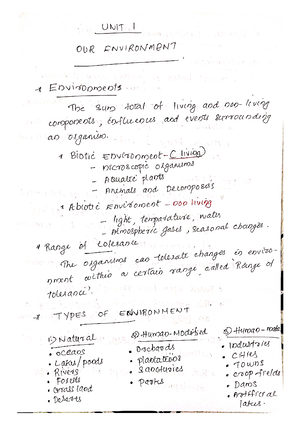 UNIT 1
OUR ENVIRONMENT
* Environments
The sum total of living and non-living
components, influences and events surrounding
an organism.
* Biotic Environment - (living)
- microscopic organisms
- Aquatic plants
- Animals and Decomposers
* Abiotic Environment - non living
- light, temparature, water
- Atmospheric gases, seasonal changes.
* Range of tolerance
The organisms can tolerate changes in enviro-
nment within a certain range called 'Range of
tolerance'.
* TYPES OF ENVIRONMENT
i) Natural
• oceans
• Lakes/ponds
• Rivers
• Forests
• Grassland
• Deserts
ii) Human-Modified
• Orchards
• plantations
• Sanctuaries
• parks
iii) Human-made
• Industries
• Cities
• Towns
• crop-fields
• Dams
• Artificial
lakes.